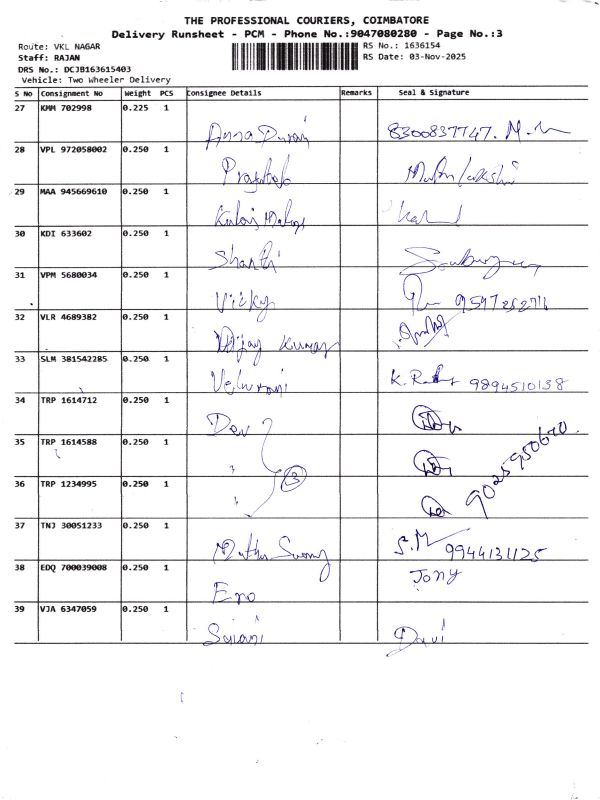 THE PROFESSIONAL COURIERS, COIMBATORE
Delivery Runsheet - PCM - Phone No.:9047080280 - Page No.:3
Route: VKL NAGAR
Staff: RAJAN
DRS No.: DCJB163615403
Vehicle: Two Wheeler Delivery
RS No.: 1636154
RS Date: 03-Nov-2025
S No Consignment No Weight PCS Consignee Details Remarks Seal & Signature
27 KMM 702998 0.225 1
8300837747. M.
28 VPL 972058002 0.250 1
29 MAA 945669610 0.250 1
30 KDI 633602 0.250 1 Shanti
31 VPM 5680034 0.250 1 Vicky
32 VLR 4689382 0.250 1 Vijay Kumar
33 SLM 381542285 0.250 1 Velumani K. 9894510138
34 TRP 1614712 0.250 1 Dev
35 TRP 1614588 0.250 1 " 3 9025950670
36 TRP 1234995 0.250 1 "
37 TNJ 30051233 0.250 1 Muthu S.M 9944131125
38 EDQ 700039008 0.250 1 Jony
39 VJA 6347059 0.250 1